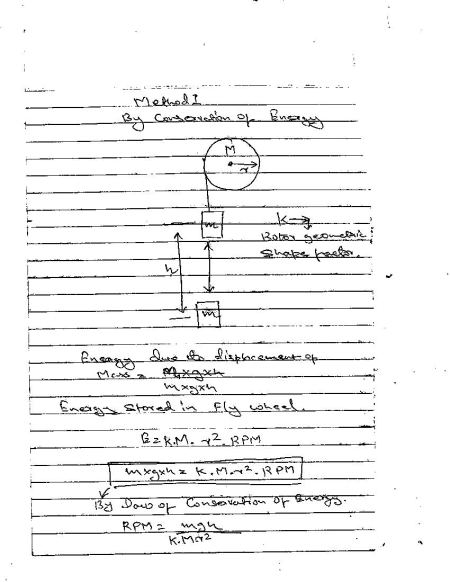 Method I
By Conservation of Energy
M
r
m
k →
Rotor geometric
Shape factor.
h
m
Energy due to displacement of
Mass = M x g x h
m x g x h
Energy stored in Fly wheel.
E = K.M. r² RPM
m x g x h = K.M.r².RPM
By Law of Conservation of Energy.
RPM = mgh
K.Mr²